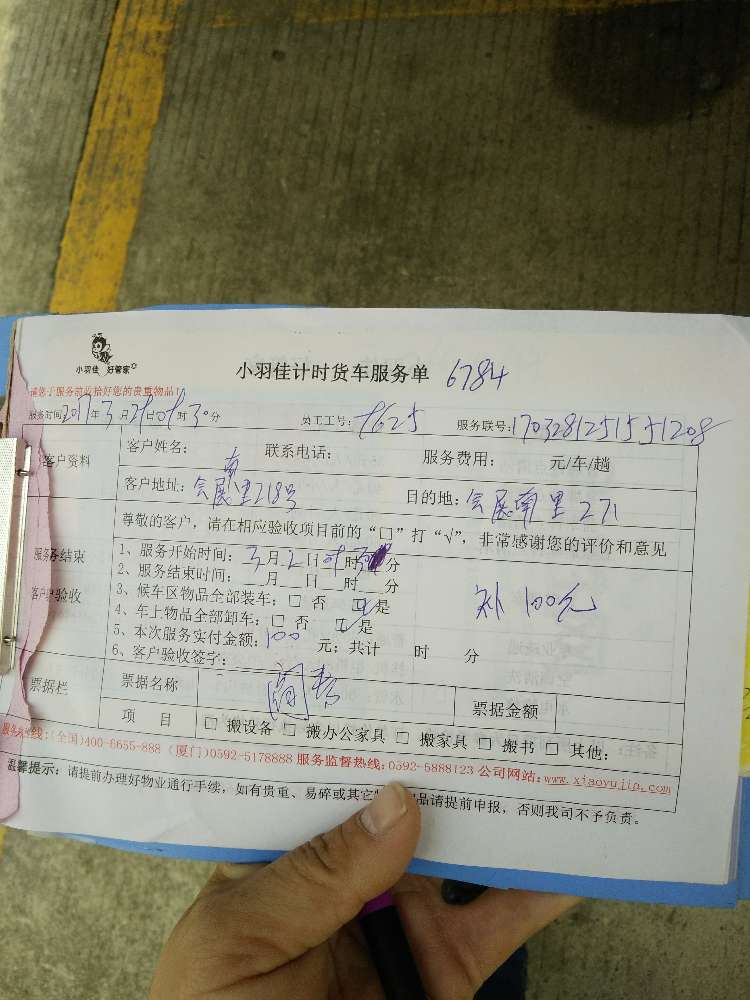 小羽佳 好管家
小羽佳计时货车服务单 6784
请您于服务前收拾好您的贵重物品!
服务时间2017年3月2日 时30分 员工工号: 9625 服务联号:
客户资料
客户姓名: 联系电话: 服务费用: 元/车/趟
客户地址:会展南里218号 目的地:会展南里271
服务结束
客户验收
尊敬的客户,请在相应验收项目前的“口”打“√”,非常感谢您的评价和意见
1、服务开始时间:3月2日 时 分
2、服务结束时间:__月__日__时__分
3、候车区物品全部装车:□ 否 ☑是
4、车上物品全部卸车:□ 否 ☑是
补100元
5、本次服务实付金额:100 元;共计 时 分
6、客户验收签字:
票据栏
票据名称 票据金额
项 目 □ 搬设备 □ 搬办公家具 □ 搬家具 □ 搬书 □ 其他:
热线:(全国)400-6655-888 (厦门)0592-5178888 服务监督热线:0592-5888123 公司网站:www.xiaoyujia.com
温馨提示:请提前办理好物业通行手续,如有贵重、易碎或其它 品请提前申报,否则我司不予负责。